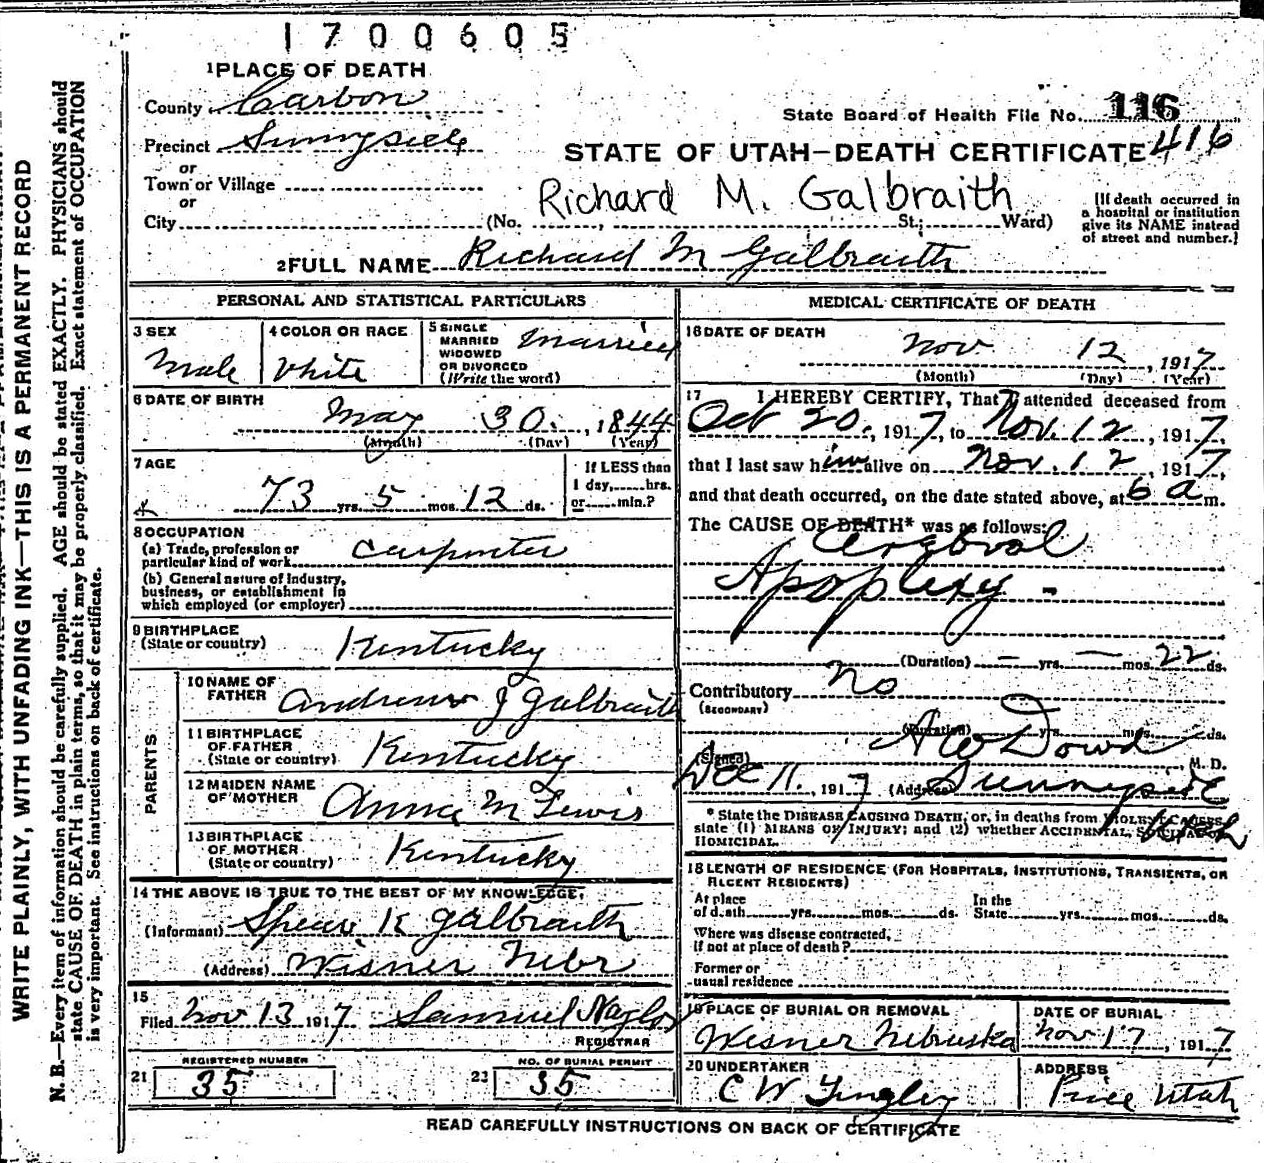 1700605
1 PLACE OF DEATH
County Carbon
Precinct Sunnyside
or
Town or Village
or
City
State Board of Health File No. 116
416
STATE OF UTAH—DEATH CERTIFICATE
Richard M. Galbraith
(No. St.; Ward)
[If death occurred in
a hospital or institution
give its NAME instead
of street and number.]
2 FULL NAME Richard M Galbraith
PERSONAL AND STATISTICAL PARTICULARS
3 SEX
Male
4 COLOR OR RACE
White
5 SINGLE
MARRIED
WIDOWED
OR DIVORCED
(Write the word)
Married
6 DATE OF BIRTH
May 30, 1844
(Month) (Day) (Year)
7 AGE
73 yrs. 5 mos. 12 ds.
If LESS than
1 day, hrs.
or min.?
8 OCCUPATION
(a) Trade, profession or
particular kind of work Carpenter
(b) General nature of industry,
business, or establishment in
which employed (or employer)
9 BIRTHPLACE
(State or country) Kentucky
PARENTS
10 NAME OF
FATHER Andrew J Galbraith
11 BIRTHPLACE
OF FATHER
(State or country) Kentucky
12 MAIDEN NAME
OF MOTHER Anna M Lewis
13 BIRTHPLACE
OF MOTHER
(State or country) Kentucky
14 THE ABOVE IS TRUE TO THE BEST OF MY KNOWLEDGE,
(Informant) K Galbraith
(Address) Wisner Nebr
15
Filed Nov 13 1917 Samuel Naylor
REGISTRAR
REGISTERED NUMBER
21 35
NO. OF BURIAL PERMIT
22 35
MEDICAL CERTIFICATE OF DEATH
16 DATE OF DEATH
Nov 12, 1917
(Month) (Day) (Year)
17 I HEREBY CERTIFY, That I attended deceased from
Oct 20, 1917, to Nov. 12, 1917,
that I last saw him alive on Nov. 12, 1917,
and that death occurred, on the date stated above, at 6 a m.
The CAUSE OF DEATH* was as follows:
Cerebral
Apoplexy -
(Duration) — yrs. — mos. 22 ds.
Contributory No
(SECONDARY)
(Duration) yrs. mos. ds.
(Signed) A W Dowd M. D.
Dec 11, 1917 (Address) Sunnyside
Utah
* State the DISEASE CAUSING DEATH, or, in deaths from VIOLENT CAUSES,
state (1) MEANS OF INJURY; and (2) whether ACCIDENTAL, SUICIDAL OR
HOMICIDAL.
18 LENGTH OF RESIDENCE (FOR HOSPITALS, INSTITUTIONS, TRANSIENTS, OR
RECENT RESIDENTS)
At place
of death yrs. mos. ds.
In the
State yrs. mos. ds.
Where was disease contracted,
if not at place of death?
Former or
usual residence
19 PLACE OF BURIAL OR REMOVAL
Wisner Nebruska
DATE OF BURIAL
Nov 17, 1917
20 UNDERTAKER
C W Tingley
ADDRESS
Price Utah
READ CAREFULLY INSTRUCTIONS ON BACK OF CERTIFICATE
WRITE PLAINLY, WITH UNFADING INK—THIS IS A PERMANENT RECORD
N. B.—Every item of information should be carefully supplied. AGE should be stated EXACTLY. PHYSICIANS should
state CAUSE OF DEATH in plain terms, so that it may be properly classified. Exact statement of OCCUPATION
is very important. See instructions on back of certificate.